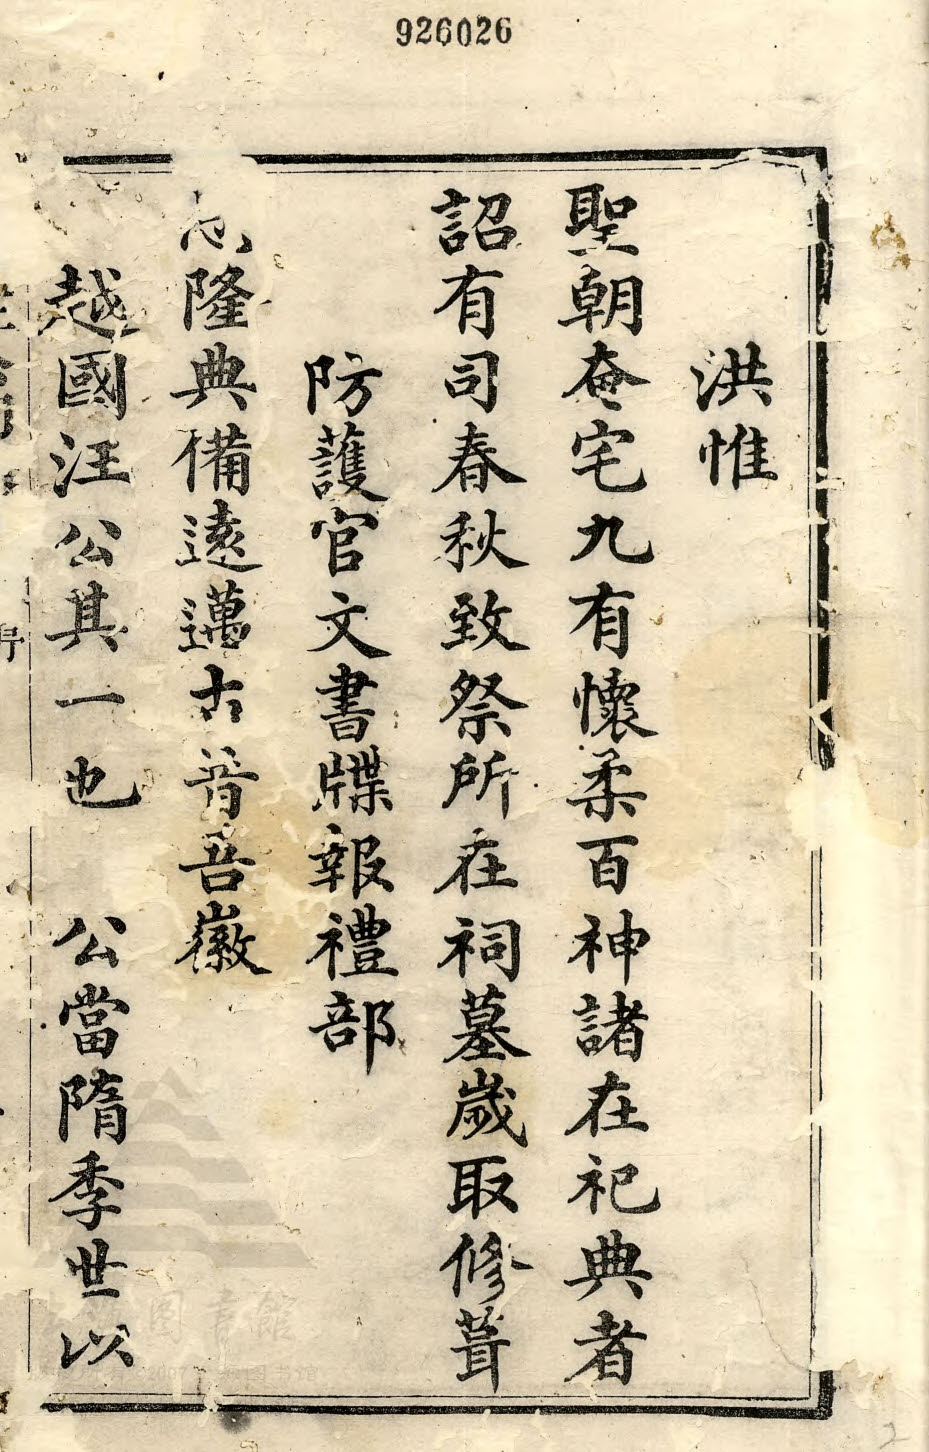 926026
洪惟
聖朝奄宅九有懷柔百神諸在祀典者
詔有司春秋致祭所在祠墓歲取修葺
防護官文書牒報禮部
隆典備逺邁古昔吾徽
越國汪公其一也 公當隋季世以
图書館
2007
图书馆
2